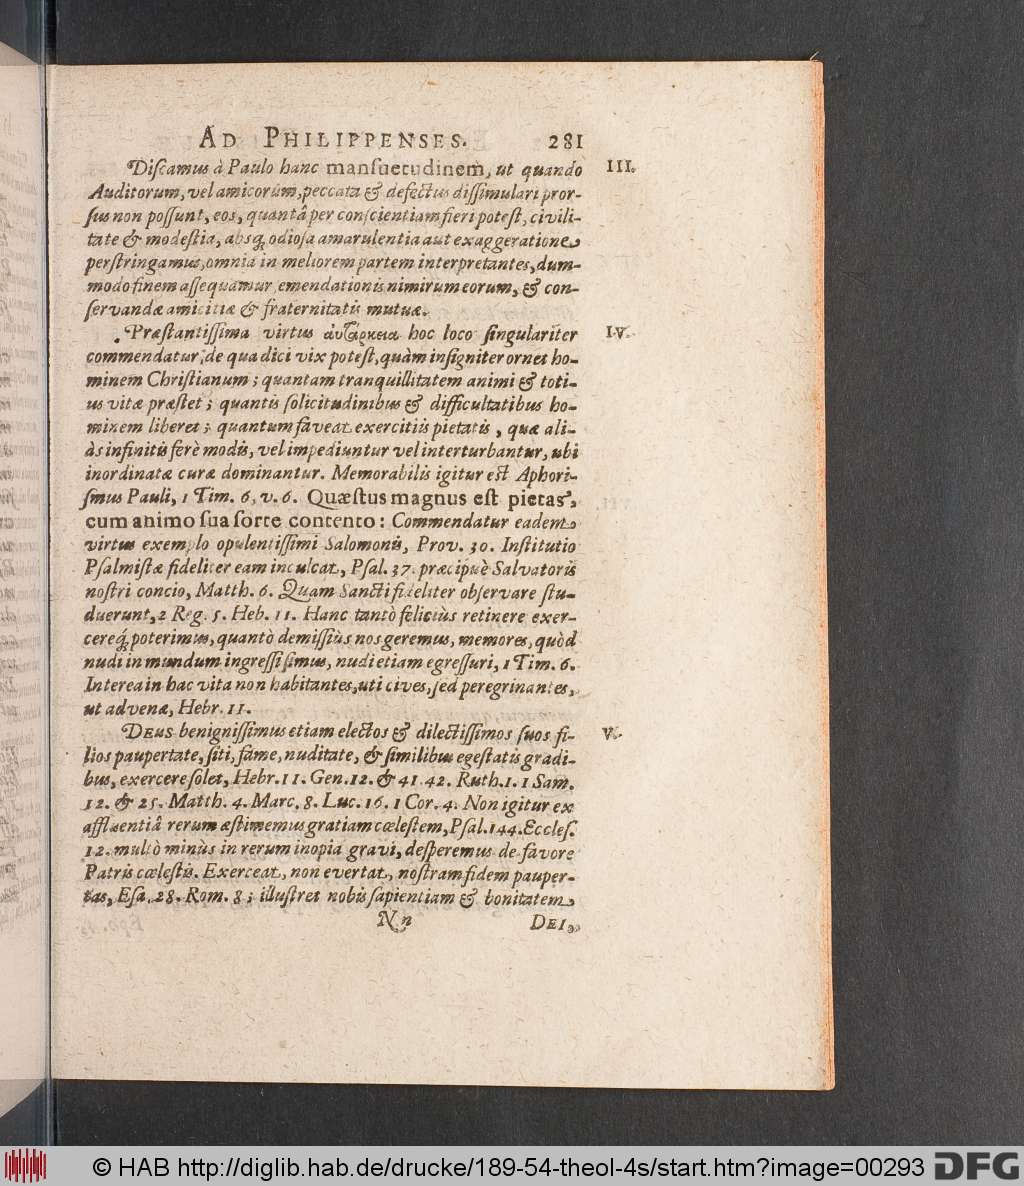 AD PHILIPPENSES. 281
Diſcamus à Paulo hanc manſuetudinem, ut quando III.
Auditorum, vel amicorum, peccata & defectus diſſimulari pror-
ſus non poſſunt, eos, quantâ per conſcientiam fieri poteſt, civili-
tate & modeſtia, absq́ odioſa amarulentia aut exaggeratione
perſtringamus, omnia in meliorem partem interpretantes, dum-
modo finem aſſequamur, emendationis nimirum eorum, & con-
ſervandæ amicitiæ & fraternitatis mutuæ.
Præſtantiſſima virtus αὐτάρκεια hoc loco ſingulariter IV.
commendatur, de qua dici vix poteſt, quàm inſigniter ornet ho-
minem Chriſtianum; quantam tranquillitatem animi & toti-
us vitæ præſtet; quantis ſolicitudinibus & difficultatibus ho-
minem liberet; quantum faveat exercitiis pietatis, quæ ali-
às infinitis ferè modis, vel impediuntur vel interturbantur, ubi
inordinatæ curæ dominantur. Memorabilis igitur est Aphori-
ſmus Pauli, 1 Tim. 6, v. 6. Quæſtus magnus eſt pietas,
cum animo ſua ſorte contento: Commendatur eadem
virtus exemplo opulentiſſimi Salomonis, Prov. 30. Inſtitutio
Pſalmiſtæ fideliter eam inculcat, Pſal. 37. præcipuè Salvatoris
noſtri concio, Matth. 6. Quam Sancti fideliter obſervare ſtu-
duerunt, 2 Reg. 5. Heb. 11. Hanc tantò feliciùs retinere exer-
cereq́ poterimus, quantò demiſſiùs nos geremus, memores, quòd
nudi in mundum ingreſſi ſimus, nudi etiam egreſſuri, 1 Tim. 6.
Interea in hac vita non habitantes, uti cives, ſed peregrinantes,
ut advenæ, Hebr. 11.
DEUS benigniſſimus etiam electos & dilectiſſimos ſuos fi- V.
lios paupertate, ſiti, fame, nuditate, & ſimilibus egeſtatis gradi-
bus, exercere ſolet, Hebr. 11. Gen. 12. & 41. 42. Ruth. 1. 1 Sam.
12. & 25. Matth. 4. Marc. 8. Luc. 16. 1 Cor. 4. Non igitur ex
affluentiâ rerum æſtimemus gratiam cœleſtem, Pſal. 144. Eccleſ.
12. multò minùs in rerum inopia gravi, deſperemus de favore
Patris cœleſtis. Exerceat, non evertat, noſtram fidem pauper-
tas, Eſa. 28. Rom. 8; illuſtret nobis ſapientiam & bonitatem
Nn DEI,
© HAB http://diglib.hab.de/drucke/189-54-theol-4s/start.htm?image=00293 DFG